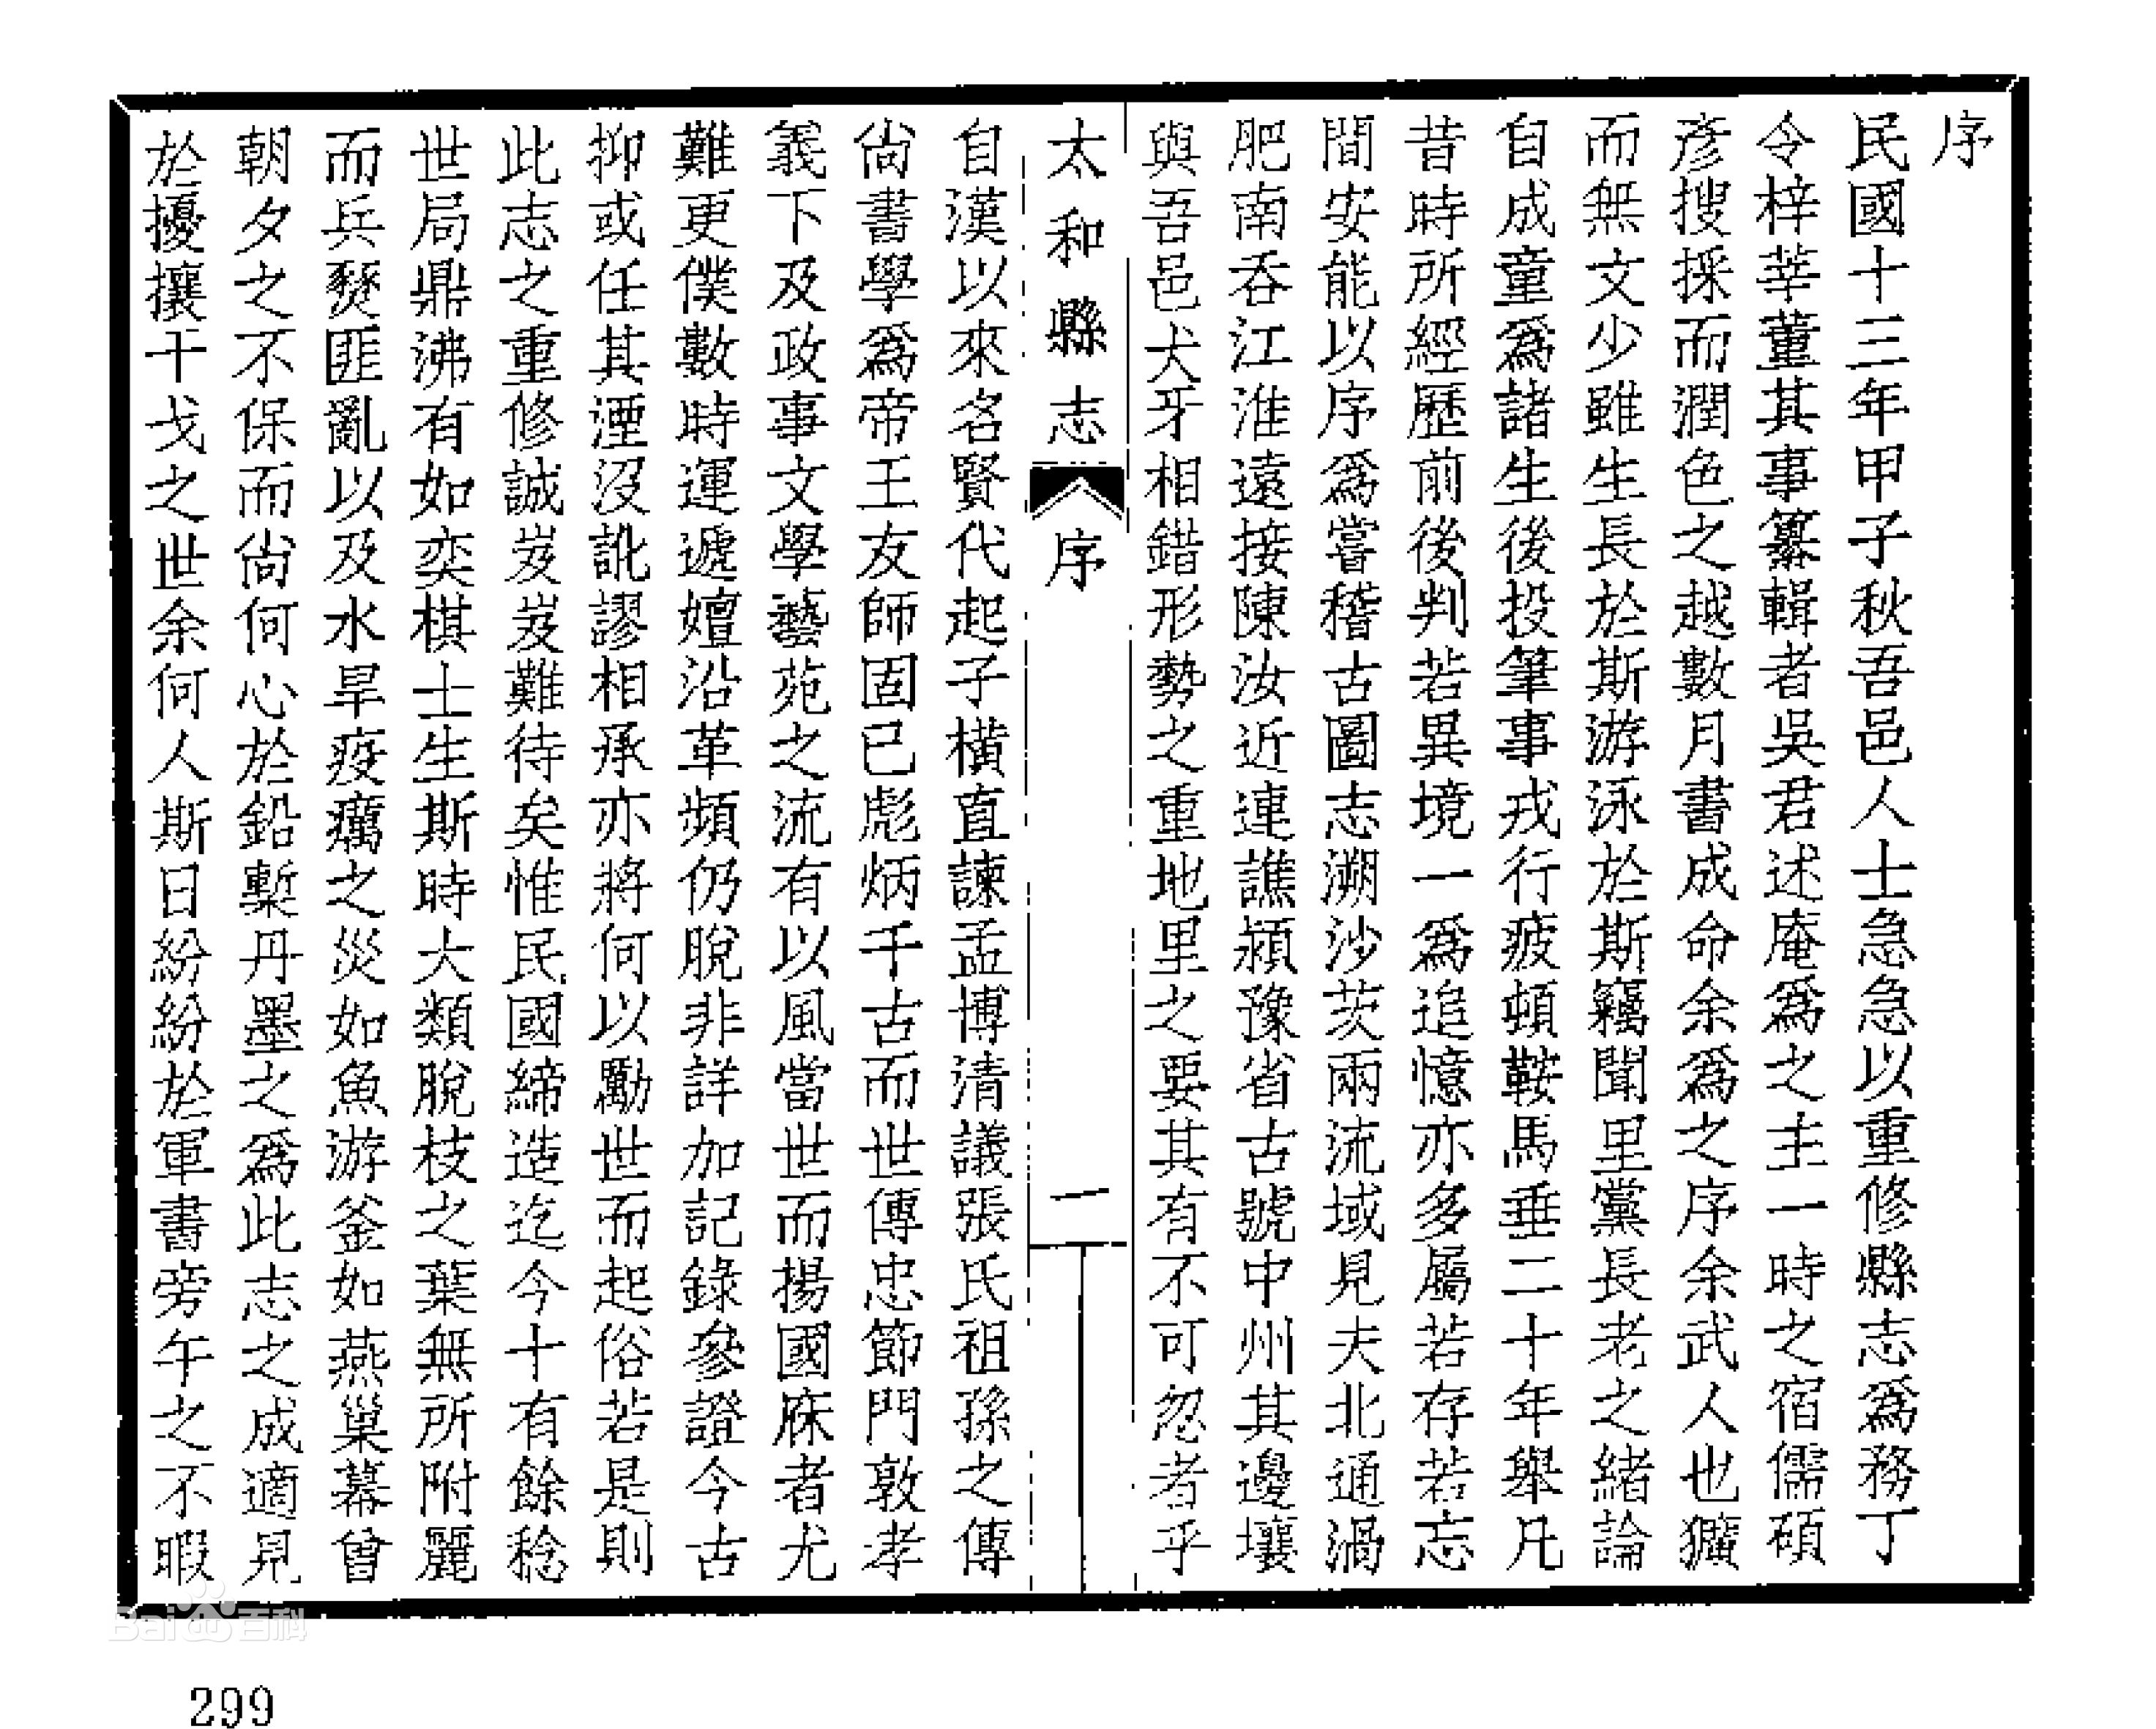 序
民國十三年甲子秋吾邑人士急急以重修縣志爲務丁
令梓莘董其事纂輯者吳君述庵爲之主一時之宿儒碩
彥搜採而潤色之越數月書成命余爲之序余武人也獷
而無文少雖生長於斯游泳於斯竊聞里黨長老之緒論
自成童爲諸生後投筆事戎行疲頓鞍馬垂二十年舉凡
昔時所經歷前後判若異境一爲追憶亦多屬若存若忘
間安能以序爲嘗稽古圖志溯沙茨兩流域見夫北通渦
肥南吞江淮遠接陳汝近連譙潁豫省古號中州其邊壤
與吾邑犬牙相錯形勢之重地里之要其有不可忽者乎
太和縣志 序 一
自漢以來名賢代起子橫直諫孟博清議張氏祖孫之傳
尙書學爲帝王友師固已彪炳千古而世傳忠節門敦孝
義下及政事文學藝苑之流有以風當世而揚國庥者尤
難更僕數時運遞嬗沿革頻仍脫非詳加記錄參證今古
抑或任其湮沒訛謬相承亦將何以勵世而起俗若是則
此志之重修誠岌岌難待矣惟民國締造迄今十有餘稔
世局鼎沸有如奕棋士生斯時大類脫枝之葉無所附麗
而兵燹匪亂以及水旱疫癘之災如魚游釜如燕巢幕曾
朝夕之不保而尙何心於鉛槧丹墨之爲此志之成適見
於擾攘干戈之世余何人斯日紛紛於軍書旁午之不暇
299
Bai 百科